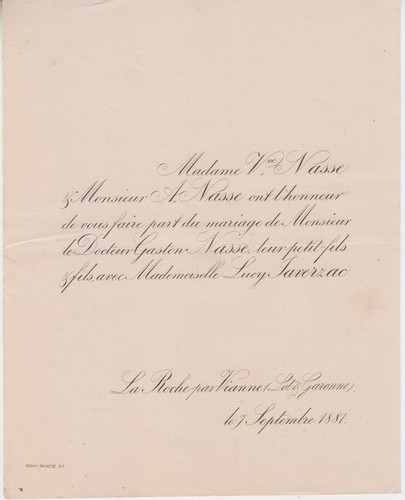 Madame Vve Nasse
& Monsieur A. Nasse ont l'honneur
de vous faire part du mariage de Monsieur
le Docteur Gaston Nasse, leur petit-fils
& fils, avec Mademoiselle Lucy Laverzac
La Roche par Vianne (Lot & Garonne),
le 7 Septembre 1881.